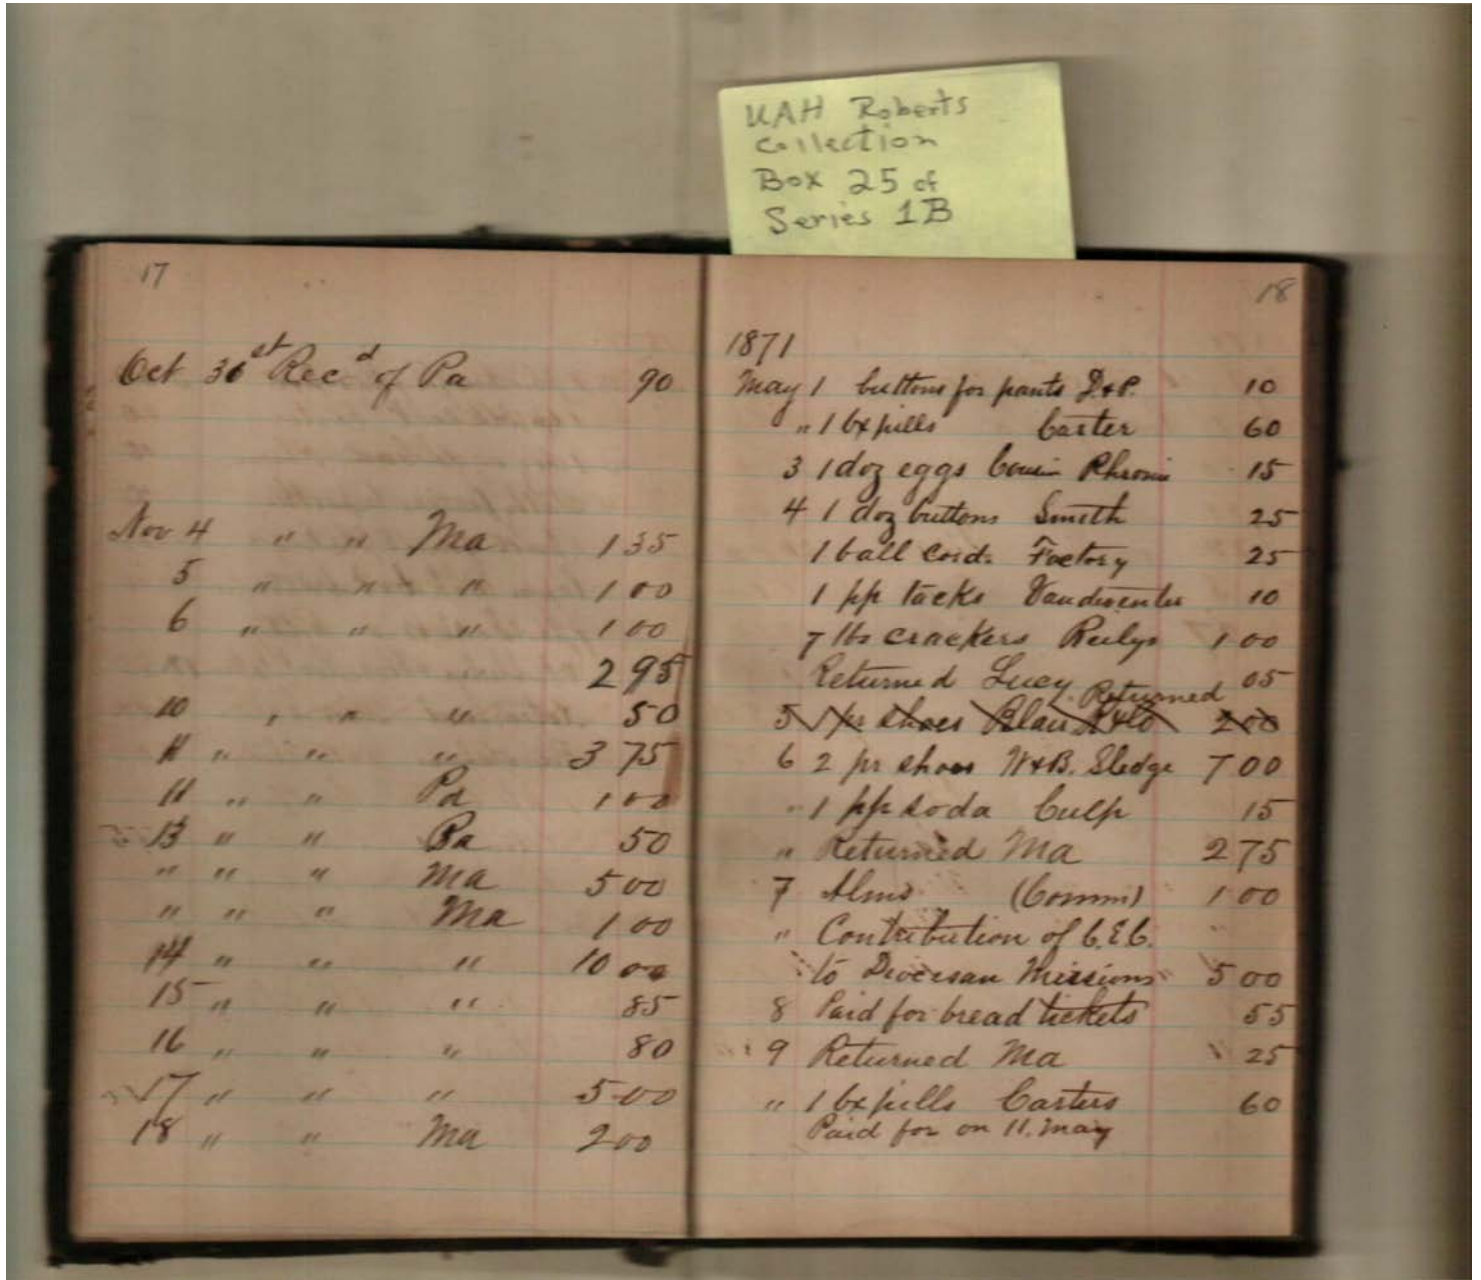 UAH Roberts
Collection
Box 25 of
Series 1B
17
Oct 30st Rec'd of Pa 90
Nov 4 " " Ma 1 35
5 " " " 1 00
6 " " " 1 00
2 95
10 " " " 50
11 " " " 3 75
11 " " Pa 1 00
13 " " Pa 50
" " " Ma 5 00
" " " Ma 1 00
14 " " " 10 00
15 " " " 85
16 " " " 80
17 " " " 5 00
18 " " Ma 2 00
18
1871
May 1 buttons for pants D.&P. 10
" 1 bx pills Carter 60
3 1 doz eggs Cousin 15
4 1 doz buttons Smith 25
1 ball cord. Factory 25
1 pp tacks 10
7 lbs crackers 1 00
Returned Lucy 05
Returned
5 1 pr shoes Blair 2 00
6 2 pr shoes W&B. Sledge 7 00
" 1 pp soda Culp 15
" Returned Ma 2 75
7 Alms (Comm) 1 00
" Contribution of C.E.C. "
to Diocesan Missions " 5 00
8 Paid for bread tickets 55
9 Returned Ma 25
" 1 bx pills Carters 60
Paid for on 11. May